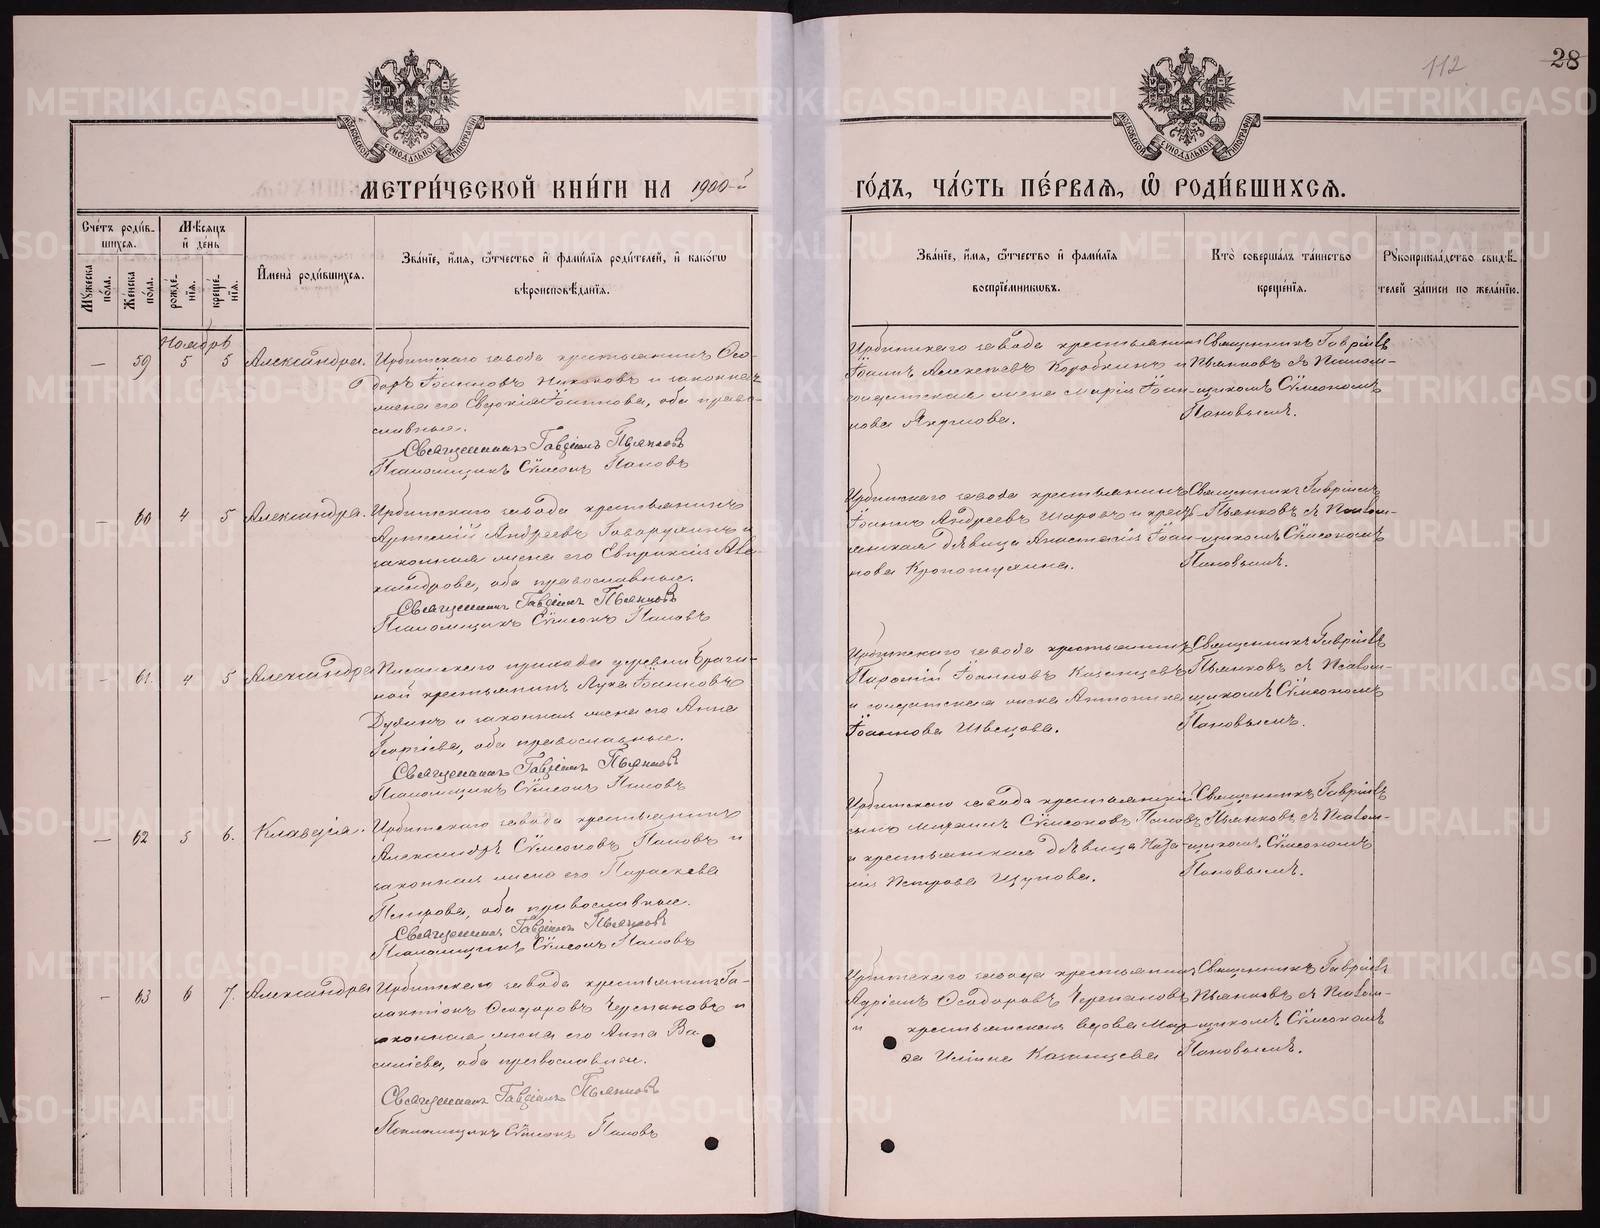 112
28
МОСКОВСКОЙ СУНОДАЛЬНОЙ ТИПОГРАФІИ
МОСКОВСКОЙ СУНОДАЛЬНОЙ ТИПОГРАФІИ
МЕТРИ́ЧЕСКОЙ КНИ́ГИ НА 1900-й
ГО́ДЪ, ЧА́СТЬ ПЕ́РВАЯ, Ѡ РОДИ́ВШИХСЯ.
Сче́тъ роди́в-
шихся.
Мꙋжеска по́ла.
Же́нска по́ла.
Мѣ́сяцъ и де́нь
рожде́нїя.
креще́нїя.
Имена̀ роди́вшихся.
Зва́нїе, и́мя, ѻ҆́тчество и фами́лїя роди́телей, и како́гѡ
вѣроисповѣ́данїя.
Зва́нїе, и́мя, ѻ҆́тчество и фами́лїя
воспрїе́мникѡвъ.
Кто̀ соверша́лъ та́инство
креще́нїя.
Рꙋкоприкла́дство свидѣ́-
телей за́писи по жела́нїю.
Ноябрь
— 59 5 5 Александра.
Ирбитскаго завода крестьянинъ Ѳео-
доръ Іоанновъ и законная
жена его Евдокія Іоаннова, оба право-
славные.
Священникъ Гавріилъ Пьянковъ
Псаломщикъ Сѵмеонъ Пановъ
Ирбитскаго завода крестьянинъ
Іоаннъ Алексѣевъ Коробкинъ и
солдатская жена Марія Іоан-
нова
Священникъ Гавріилъ
Пьянковъ съ Псалом-
щикомъ Сѵмеономъ
Пановымъ.
— 60 4 5 Александра.
Ирбитскаго завода крестьянинъ
Артемій Андреевъ и
законная жена его Евпраксія Але-
ксандрова, оба православные.
Священникъ Гавріилъ Пьянковъ
Псаломщикъ Сѵмеонъ Пановъ
Ирбитскаго завода крестьянинъ
Іоаннъ Андреевъ Шаровъ и крестья-
янская дѣвица Анастасія Іоан-
нова
Священникъ Гавріилъ
Пьянковъ съ Псалом-
щикомъ Сѵмеономъ
Пановымъ.
— 61 4 5 Александра
Писанскаго прихода деревни Браги-
ной крестьянинъ Лука Іоанновъ
Дубинъ и законная жена его Анна
Георгіева, оба православные.
Священникъ Гавріилъ Пьянковъ
Псаломщикъ Сѵмеонъ Пановъ
Ирбитскаго завода крестьянинъ
Іоанновъ Казанцевъ
и солдатская жена Антонина
Іоаннова Швецова.
Священникъ Гавріилъ
Пьянковъ съ Псалом-
щикомъ Сѵмеономъ
Пановымъ.
— 62 5 6. Клавдія.
Ирбитскаго завода крестьянинъ
Александръ Сѵмеоновъ Пановъ и
законная жена его Параскева
Петрова, оба православные.
Священникъ Гавріилъ Пьянковъ
Псаломщикъ Сѵмеонъ Пановъ
Ирбитскаго завода крестьянскій
сынъ Михаилъ Сѵмеоновъ Пановъ
и крестьянская дѣвица
Петрова Щупова.
Священникъ Гавріилъ
Пьянковъ съ Псалом-
щикомъ Сѵмеономъ
Пановымъ.
— 63 6 7. Александра
Ирбитскаго завода крестьянинъ Га-
лактіонъ Ѳеодоровъ Черепановъ и
законная жена его Анна Ва-
силіева, оба православные.
Священникъ Гавріилъ Пьянковъ
Псаломщикъ Сѵмеонъ Пановъ
Ирбитскаго завода крестьянинъ
Адріанъ Ѳеодоровъ Черепановъ
и крестьянская вдова
Иліина Казанцева
Священникъ Гавріилъ
Пьянковъ съ Псалом-
щикомъ Сѵмеономъ
Пановымъ.
METRIKI.GASO-URAL.RU